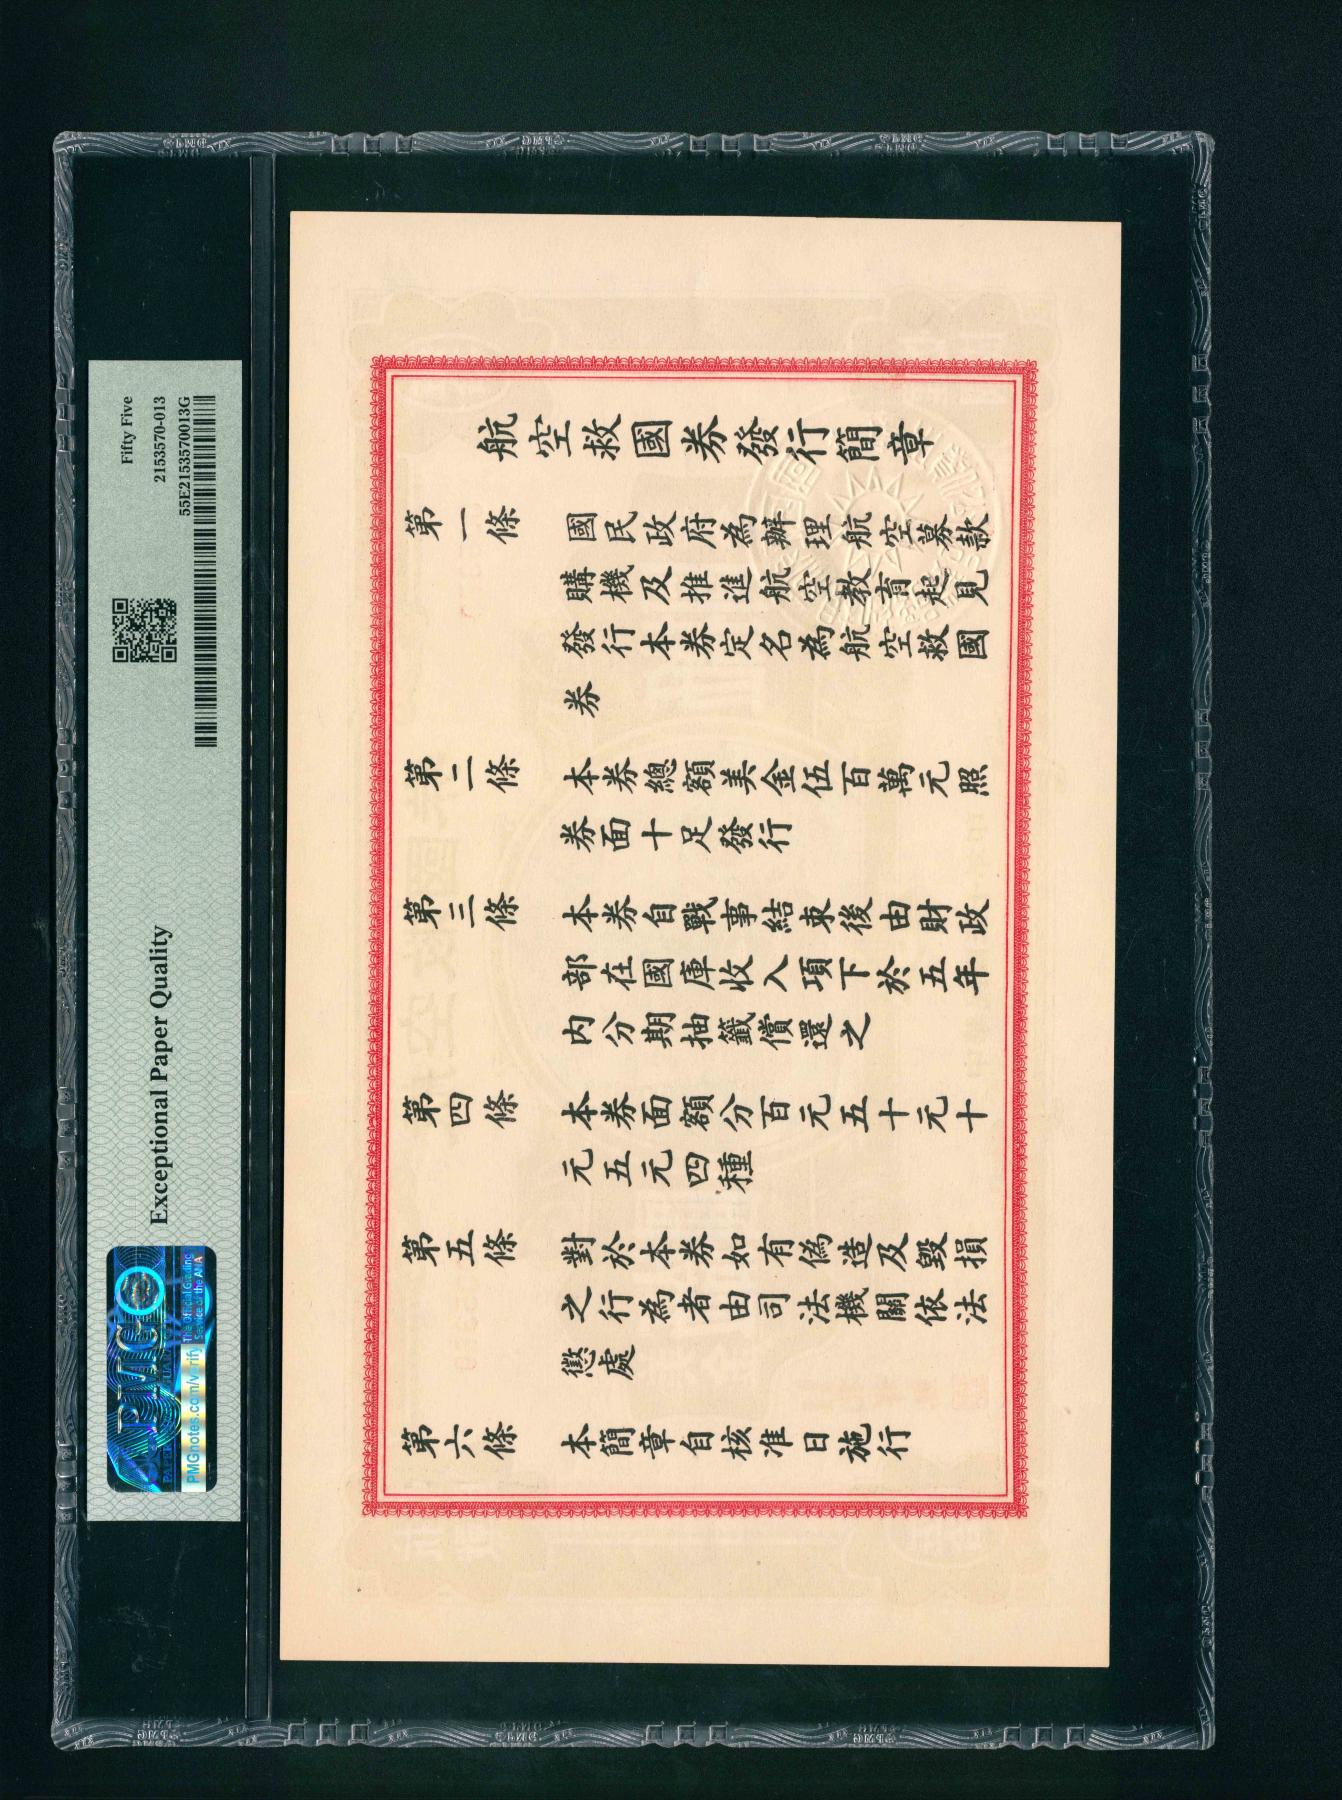 航空救國券發行簡章
第一條
國民政府為辦理航空募款
購機及推進航空教育起見
發行本券定名為航空救國
券
第二條
本券總額美金伍百萬元照
券面十足發行
第三條
本券自戰事結束後由財政
部在國庫收入項下於五年
內分期抽籤償還之
第四條
本券面額分百元五十元十
元五元四種
第五條
對於本券如有偽造及毀損
之行為者由司法機關依法
懲處
第六條
本簡章自核准日施行
Fifty Five
2153570-013
55E2153570013G
Exceptional Paper Quality
PMG
The Official Grading
Service of the ANA
PMGnotes.com/verify